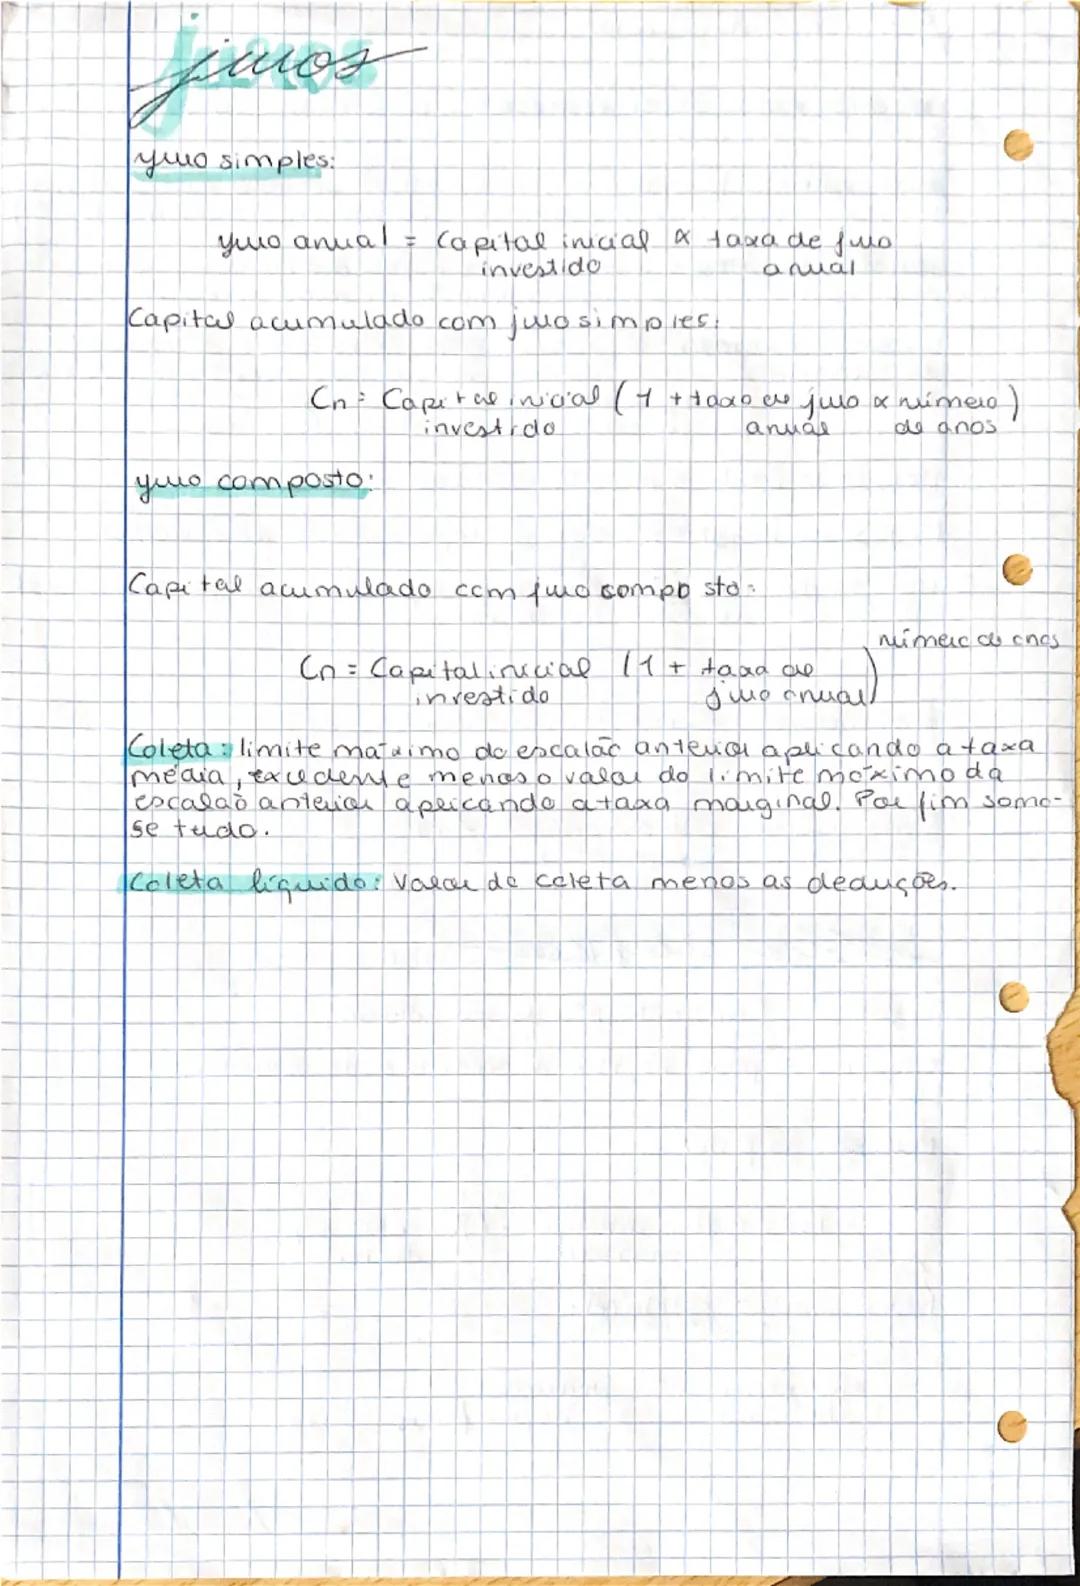 juros
juro simples:
juro anual = Capital inicial x taxa de juro
investido anual
Capital acumulado com juro simples:
Cn = Capital inicial (1 + taxa de juro x número)
investido anual de anos
juro composto:
Capital acumulado com juro composto:
número de anos
Cn = Capital inicial (1 + taxa de
investido juro anual)
Coleta: limite máximo do escalão anterior aplicando a taxa
média, excedente menos o valor do limite máximo da
escalão anterior aplicando a taxa marginal. Por fim soma-
se tudo.
Coleta líquida: Valor de coleta menos as deduções.